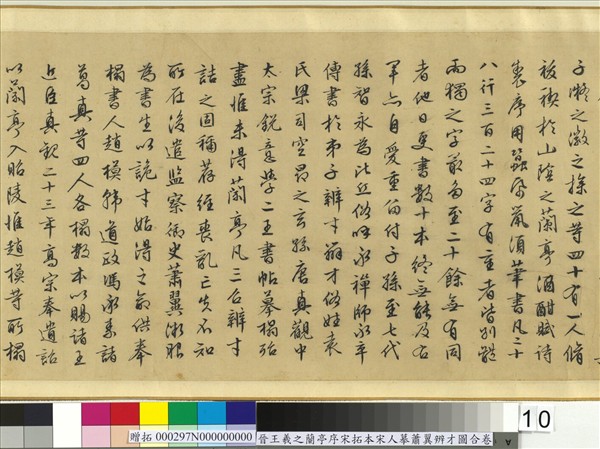 子凝之徽之操之等四十有一人脩
祓禊於山陰之蘭亭酒酣賦詩
製序用蠶紙鼠鬚筆書凡二十
八行三百二十四字有重者皆別體
而獨之字最多至二十餘無有同
者他日更書數十本終無能及右
軍亦自愛重留付子孫至七代
孫智永為比丘俗呼永禪師永卒
傳書於弟子辯才辯才俗姓袁
氏梁司空昂之玄孫唐貞觀中
太宗銳意學二王書帖摹搨殆
盡惟未得蘭亭凡三召辯才
詰之固稱荐經喪亂亡失不知
所在後遣監察御史蕭翼微服
為書生以詭才始得之命供奉
搨書人趙模韓道政馮承素諸
葛真等四人各搨數本以賜諸王
近臣貞觀二十三年高宗奉遺詔
以蘭亭入昭陵惟趙模等所搨
10
贈拓 000297N000000000
晉王羲之蘭亭序宋拓本宋人摹蕭翼辨才圖合卷
A